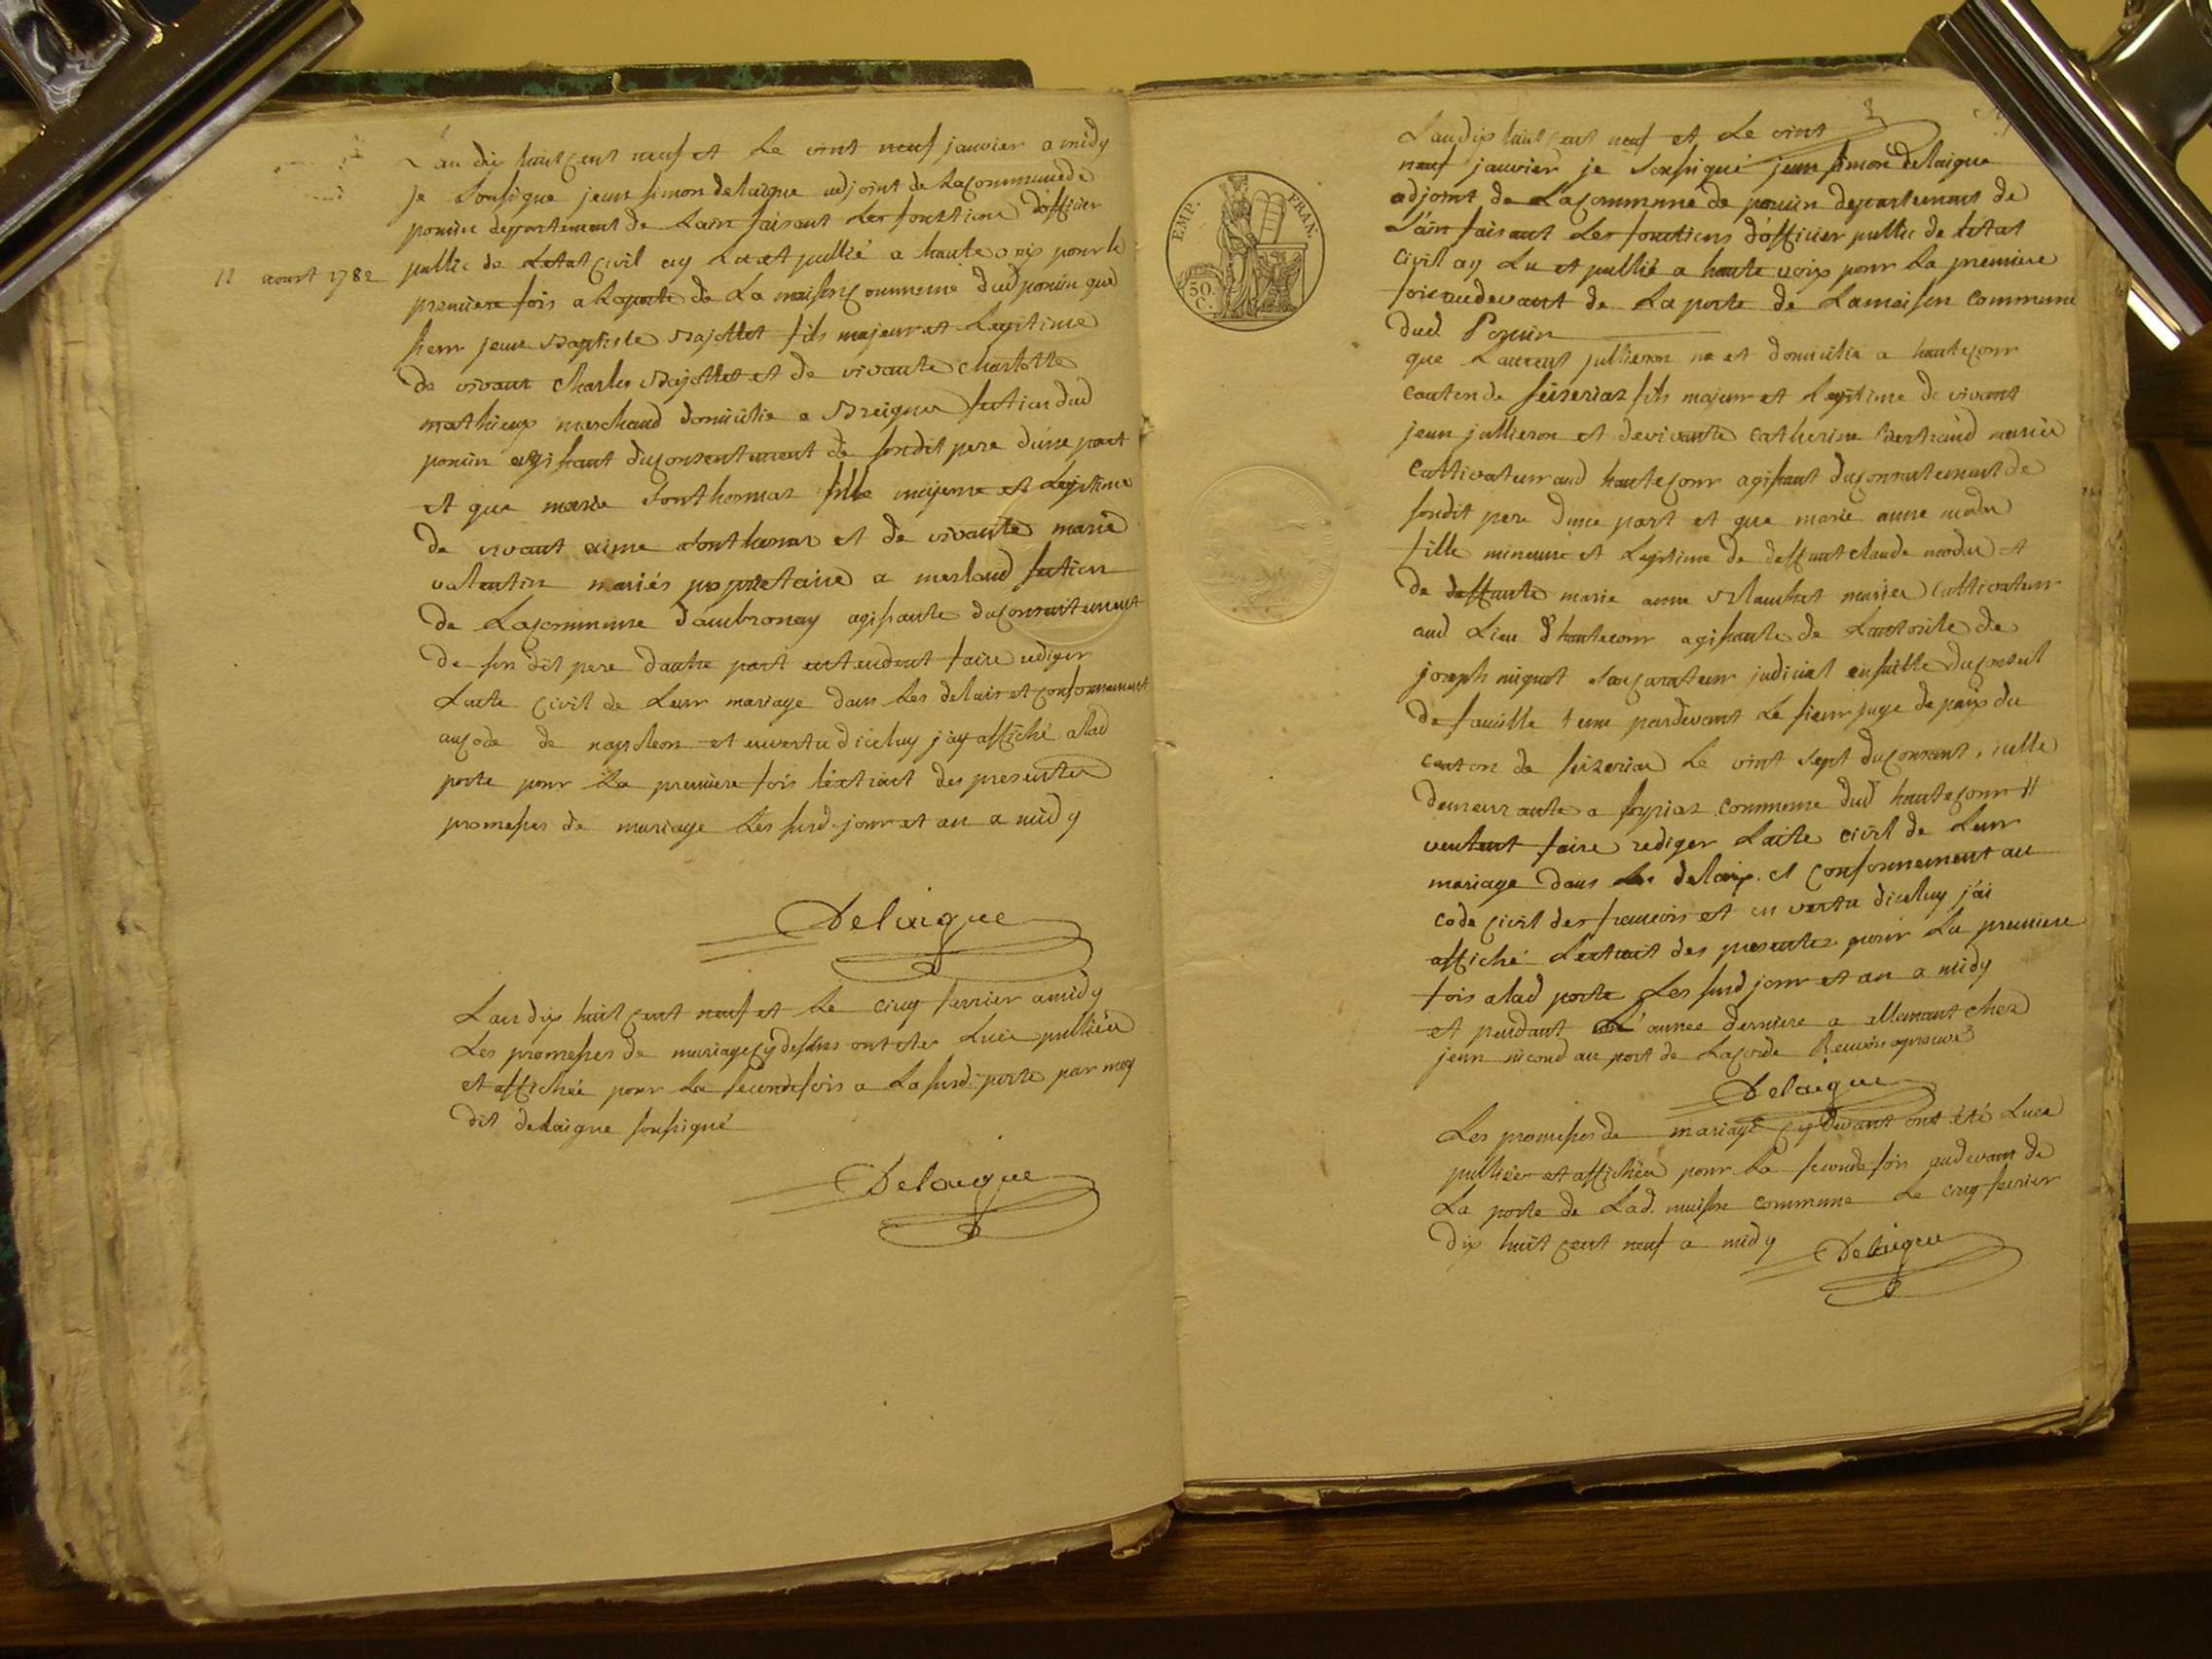 Lan dix huit cent neuf et Le vint neuf janvier a midy
je Sousigne jean simon delaigne adjoint de La commune de
poncin departement de Lain faisant Les fonctions d'officier
public de Letat civil ay Lu et publié a haute voix pour la
11 aoust 1782
premiere fois a la porte de La maison commune dud poncin que
sieur jean Baptiste Bajollet fils majeur et Legitime
de vivant Charles Bajollet et de vivante charlotte
mathieux marchand domicilié a Breignes section dud
poncin agissant du consentement de sondit pere d'une part
et que marie fille majeure et Legitime
de vivant aime et de vivante marie
valentin mariés propriétaire a merland section
de La commune d'ambronay agissante du consentement
de son dit pere dautre part entendent faire rediger
Lacte civil de Leur mariage dans Les delais et conformement
au code de napoleon et en vertu diceluy j'ay affiché a lad
porte pour La premiere fois l'extrait des presentes
promesses de mariage Les susd jour et an a midy
Delaigue
Lan dix huit cent neuf et Le cinq fevrier a midy
Les promesses de mariage cy dessus ont etes Lues publiées
et affichée pour La seconde fois a La susd. porte par moy
dit delaigue sousigné
Delaigue
EMP. FRAN.
50. C.
Lan dix huit cent neuf et Le vint
neuf janvier je Sousigné jean simon delaigue
adjoint de La commune de poncin departement de
L'ain faisant Les fonctions d'officier public de létat
civil ay Lu et publié a haute voix pour La premiere
fois audevant de La porte de La maison commune
dud Poncin
que Laurent jullieron né et domicilié a hautecour
canton de seiseriaz fils majeur et Legitime de vivant
jean jullieron et de vivante catherine Bertrand mariés
Cultivateur aud hautecour agissant du consentement de
sondit pere dune part et que marie anne modu
fille mineure et Legitime de deffunt claude modu et
de deffunte marie anne Blanchet mariés Cultivateur
aud Lieu d'hautecour agissante de Lautorite de
joseph son curateur judiciel ensuitte du conseil
de famille tenu pardevant Le sieur juge de paix du
canton de seizeriaz Le vint sept du courant, icelle
demeurante a commune dud hautecour #
veulent faire rediger Lacte civil de Leur
mariage dans Les delaix et conformement au
code civil des francois et en vertu diceluy j'ai
affiché Lextrait des presentes pour La premiere
fois a lad porte Les susd jour et an a midy
# et pendant L'année derniere a allemant chez
jean nicoud au port de La corde Renvoi aprouvé
Delaigue
Les promesses de mariage cy devant ont été Lues
publiées et affichées pour La seconde fois audevant de
La porte de Lad. maison commune Le cinq fevrier
dix huit cent neuf a midy Delaigue